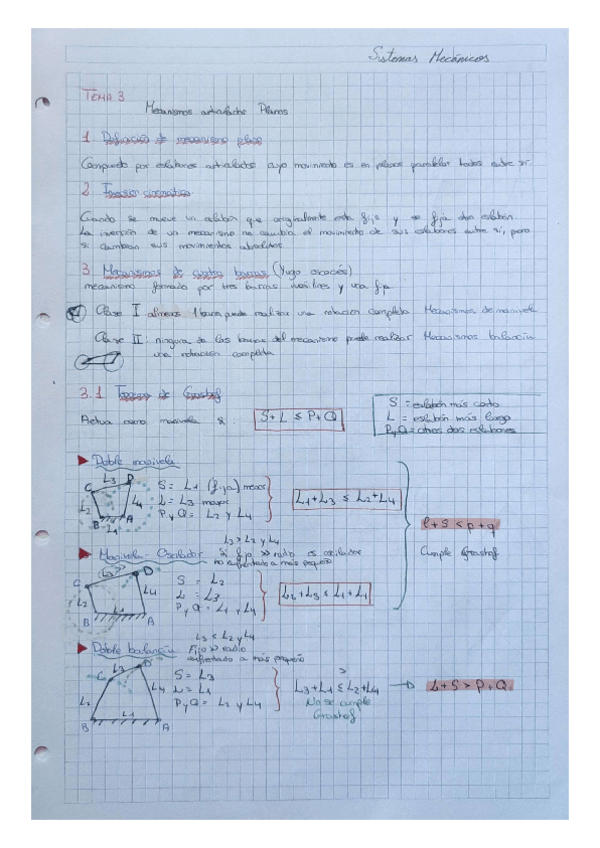 Sistemas Mecánicos
TEMA 3
Mecanismos articulados Planos
1 Definición de mecanismo plano
Compuesto por eslabones articulados cuyo movimiento es en planos paralelos todos entre sí.
2 Inversión cinemática
Cuando se mueve un eslabón que originalmente esta fijo y se fija otro eslabón.
La inversión de un mecanismo no cambia el movimiento de sus eslabones entre sí, pero
si cambian sus movimientos absolutos
3 Mecanismos de cuatro barras (Yugo
mecanismo formado por tres barras móviles y una fija
Clase I al menos 1 barra puede realizar una rotación completa Mecanismos de manivela
Clase II: ninguna de las barras del mecanismo puede realizar Mecanismos balancín
una rotación completa
3.1 Teorema de Grashof
Actua como manivela si: S+L ≤ P+Q
S = eslabón más corto
L = eslabón más largo
P y Q = otros dos eslabones
Doble manivela
C L3 D L2 L4 B A L1
S = L1 (fija) menor
L = L3 mayor
P y Q = L2 y L4
L1+L3 ≤ L2+L4
l+s < p+q
Cumple Grashof
L3 > L2 y L4
Manivela-Oscilador Si fijo >> radio es oscilador
no enfrentado a más pequeño
C L3 >> D L2 L4 B L1 A
S = L2
L = L3
P y Q = L1 y L4
L2+L3 ≤ L1+L1
L3 < L2 y L4
Doble balancín Fijo >> radio
enfrentado a más pequeño
C L3 D L2 L4 B L1 A
S = L3
L = L1
P y Q = L2 y L4
>
L3+L1 ≤ L2+L4
No se cumple
Grashof
L+S > P+Q